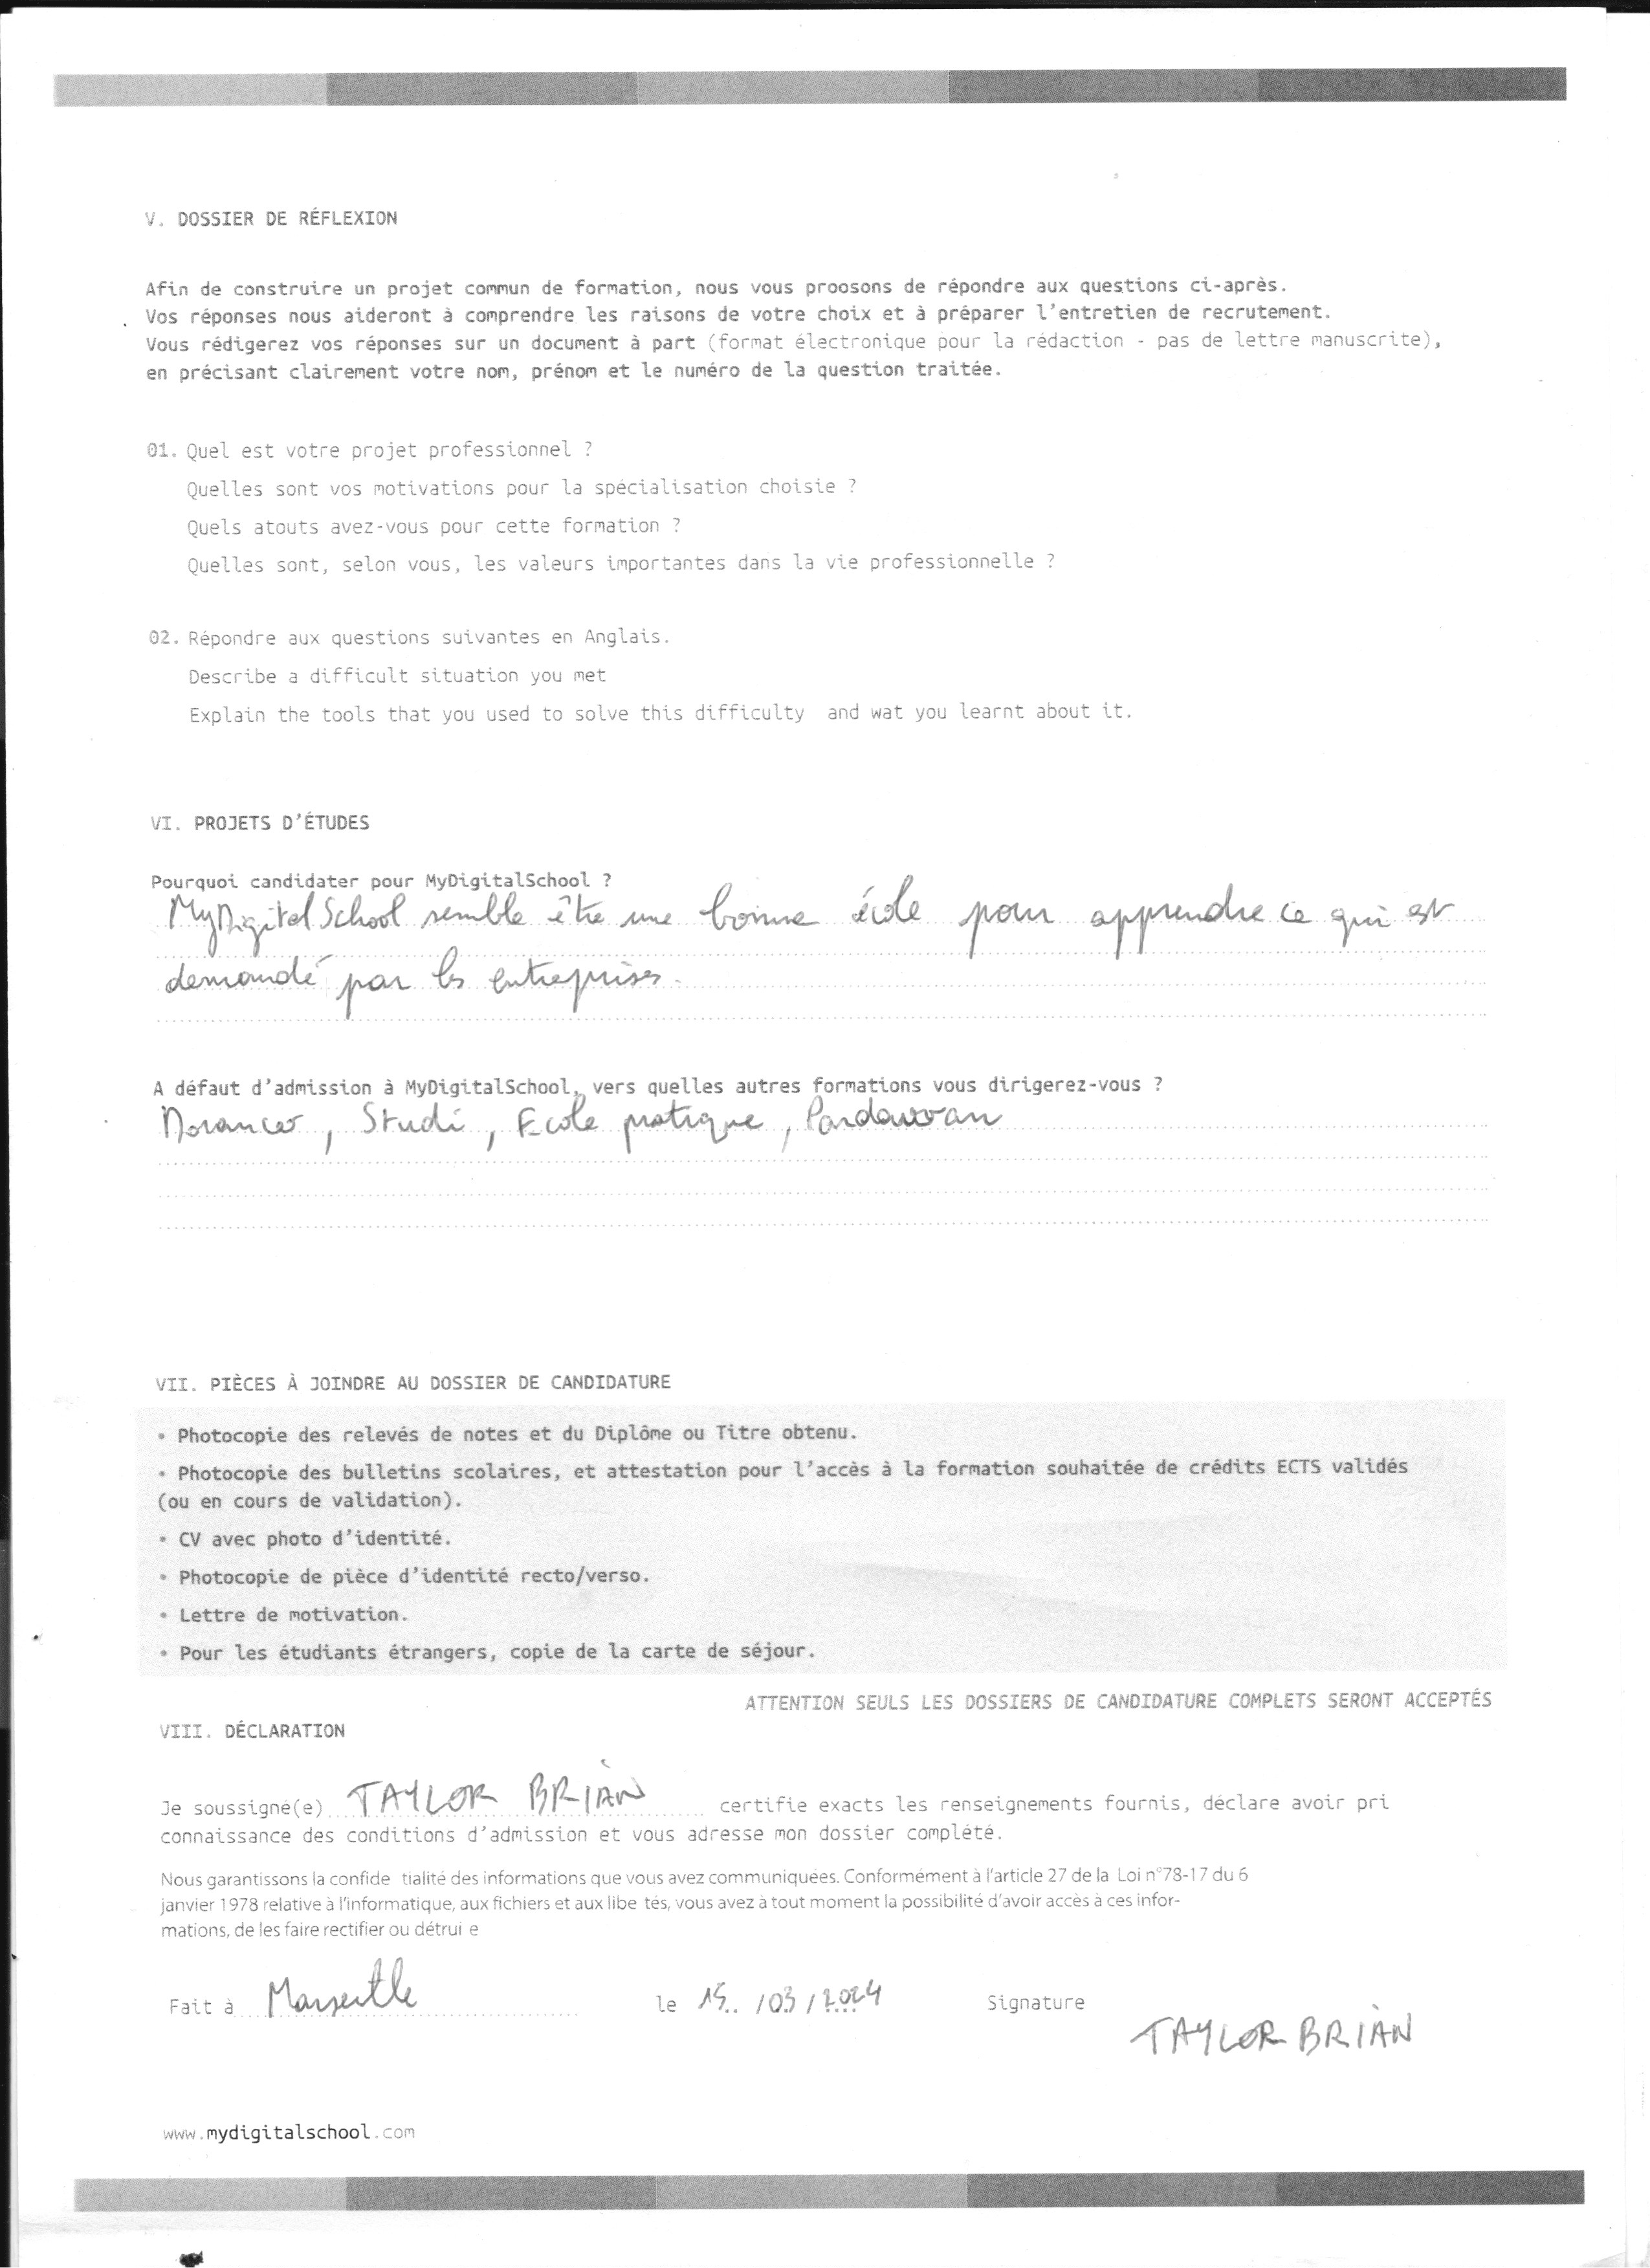 V. DOSSIER DE RÉFLEXION
Afin de construire un projet commun de formation, nous vous proosons de répondre aux questions ci-après.
Vos réponses nous aideront à comprendre les raisons de votre choix et à préparer l'entretien de recrutement.
Vous rédigerez vos réponses sur un document à part (format électronique pour la rédaction - pas de lettre manuscrite),
en précisant clairement votre nom, prénom et le numéro de la question traitée.
01. Quel est votre projet professionnel ?
Quelles sont vos motivations pour la spécialisation choisie ?
Quels atouts avez-vous pour cette formation ?
Quelles sont, selon vous, les valeurs importantes dans la vie professionnelle ?
02. Répondre aux questions suivantes en Anglais.
Describe a difficult situation you met
Explain the tools that you used to solve this difficulty and wat you learnt about it.
VI. PROJETS D'ÉTUDES
Pourquoi candidater pour MyDigitalSchool ?
MyDigitalSchool semble être une bonne école pour apprendre ce qui est
demandé par les entreprises.
A défaut d'admission à MyDigitalSchool, vers quelles autres formations vous dirigerez-vous ?
, Studi, Ecole pratique,
VII. PIÈCES À JOINDRE AU DOSSIER DE CANDIDATURE
• Photocopie des relevés de notes et du Diplôme ou Titre obtenu.
• Photocopie des bulletins scolaires, et attestation pour l'accès à la formation souhaitée de crédits ECTS validés
(ou en cours de validation).
• CV avec photo d'identité.
• Photocopie de pièce d'identité recto/verso.
• Lettre de motivation.
• Pour les étudiants étrangers, copie de la carte de séjour.
ATTENTION SEULS LES DOSSIERS DE CANDIDATURE COMPLETS SERONT ACCEPTÉS
VIII. DÉCLARATION
Je soussigné(e) TAYLOR BRIAN certifie exacts les renseignements fournis, déclare avoir pri
connaissance des conditions d'admission et vous adresse mon dossier complété.
Nous garantissons la confide tialité des informations que vous avez communiquées. Conformément à l'article 27 de la Loi n°78-17 du 6
janvier 1978 relative à l'informatique, aux fichiers et aux libe tés, vous avez à tout moment la possibilité d'avoir accès à ces infor-
mations, de les faire rectifier ou détrui e
Fait à Marseille le 15/03/2024 Signature
TAYLOR BRIAN
www.mydigitalschool.com